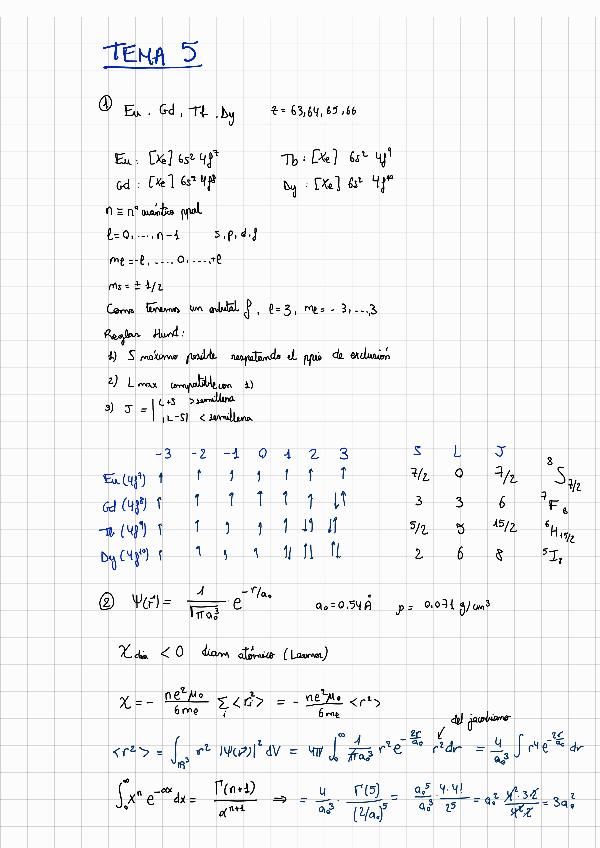 TEMA 5
① Eu, Gd, Tb, Dy z = 63,64,65,66
Eu: [Xe] 6s² 4f⁷ Tb: [Xe] 6s² 4f⁹
Gd: [Xe] 6s² 4f⁸ Dy: [Xe] 6s² 4f¹⁰
n ≡ nº cuántico ppal
l = 0, ..., n-1 s, p, d, f
me = -l, ..., 0, ..., +l
ms = ± 1/2
Como tenemos un orbital f, l = 3, me = -3, ..., 3
Reglas Hund:
1) S máximo posible respetando el ppio de exclusión
2) L max compatible con 1)
3) J = | L+S > semillena
|L-S| < semillena
-3 -2 -1 0 1 2 3 S L J
Eu (4f⁷) ↑ ↑ ↑ ↑ ↑ ↑ ↑ 7/2 0 7/2 ⁸S₇/₂
Gd (4f⁸) ↑ ↑ ↑ ↑ ↑ ↑ ↓↑ 3 3 6 ⁷F₆
Tb (4f⁹) ↑ ↑ ↑ ↑ ↑ ↓↑ ↓↑ 5/2 5 15/2 ⁶H₁₅/₂
Dy (4f¹⁰) ↑ ↑ ↑ ↑ ↑↓ ↑↓ ↑↓ 2 6 8 ⁵I₈
② Ψ(r⃗) = 1/√(πa₀³) · e^(-r/a₀) a₀ = 0.54 Å ρ = 0.071 g/cm³
χ dia < 0 diam atómico (Larmor)
χ = - ne²μ₀/6me Σᵢ <rᵢ²> = - ne²μ₀/6me <r²>
del jacobiano
<r²> = ∫_ℝ³ r² |Ψ(r⃗)|² dV = 4π ∫₀^∞ 1/πa₀³ r² e^(-2r/a₀) r² dr = 4/a₀³ ∫ r⁴ e^(-2r/a₀) dr
∫₀^∞ xⁿ e^(-αx) dx = Γ(n+1)/α^(n+1) ⇒ = 4/a₀³ · Γ(5)/(2/a₀)⁵ = a₀⁵/a₀³ · 4·4!/2⁵ = a₀² 4²·3·2/4²·2 = 3a₀²